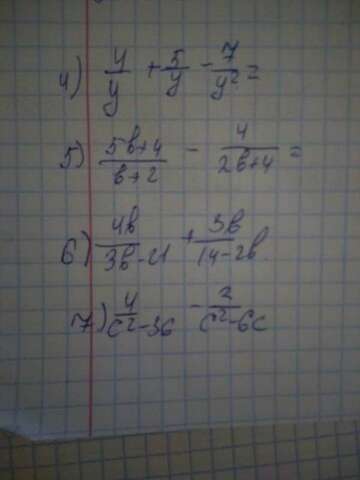 4) 4/y + 5/y - 7/y² =
5) 5b+4/b+2 - 4/2b+4 =
6) 4b/3b-21 + 3b/14-2b
7) 4/c²-36 - 2/c²-6c